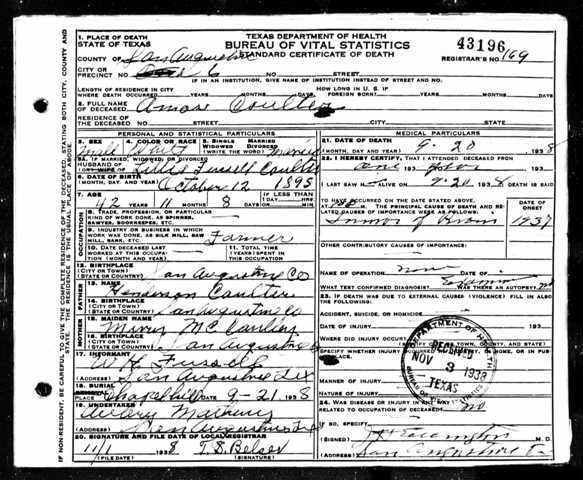 STATING BOTH CITY, COUNTY AND
IF NON-RESIDENT, BE CAREFUL TO GIVE THE COMPLETE RESIDENCE OF THE DECEASED
STATE. THE RESIDENCE IS THE USUAL PLACE OF ABODE.
TEXAS DEPARTMENT OF HEALTH
BUREAU OF VITAL STATISTICS
STANDARD CERTIFICATE OF DEATH
43196
REGISTRAR'S NO. 169
1. PLACE OF DEATH
STATE OF TEXAS
COUNTY OF San Augustine
CITY OR
PRECINCT NO. 6 NO. STREET
IF IN AN INSTITUTION, GIVE NAME OF INSTITUTION INSTEAD OF STREET AND NO.
LENGTH OF RESIDENCE IN CITY
WHERE DEATH OCCURRED YEARS MONTHS DAYS
HOW LONG IN U. S. IF
FOREIGN BORN YEARS MONTHS DAYS
2. FULL NAME
OF DECEASED Amos Coulter
RESIDENCE OF
THE DECEASED NO. STREET CITY STATE
PERSONAL AND STATISTICAL PARTICULARS
3. SEX Male
4. COLOR OR RACE White
5. SINGLE MARRIED
WIDOWED DIVORCED
(WRITE THE WORD) Married
5A. IF MARRIED, WIDOWED OR DIVORCED
HUSBAND OF
OR WIFE OF Fussell Coulter
6. DATE OF BIRTH
(MONTH, DAY, AND YEAR) October 12 1895
7. AGE
42 YEARS 11 MONTHS 8 DAYS
IF LESS THAN
1 DAY HRS MIN
OCCUPATION
8. TRADE, PROFESSION, OR PARTICULAR
KIND OF WORK DONE, AS SPINNER,
SAWYER, BOOKKEEPER, ETC.
9. INDUSTRY OR BUSINESS IN WHICH
WORK WAS DONE, AS SILK MILL, SAW
MILL, BANK, ETC. Farmer
10. DATE DECEASED LAST
WORKED AT THIS OCCUPATION (MONTH AND YEAR)
11. TOTAL TIME
(YEARS) SPENT IN
THIS OCCUPATION
12. BIRTHPLACE
(CITY OR TOWN)
(STATE OR COUNTRY) San Augustine Co
FATHER
13. NAME Henderson Coulter
14. BIRTHPLACE
(CITY OR TOWN)
(STATE OR COUNTRY) San Augustine Co
MOTHER
15. MAIDEN NAME
16. BIRTHPLACE
(CITY OR TOWN)
(STATE OR COUNTRY) San Augustine Co
17. INFORMANT W H Fussell
(ADDRESS) San Augustine Tex
18. BURIAL
PLACE Chapel hill 9-21 1938
19. UNDERTAKER
(ADDRESS) San Augustine Tex
20. SIGNATURE AND FILE DATE OF LOCAL REGISTRAR
11/1 1938 T. S. Belser
(FILE DATE) (SIGNATURE)
MEDICAL PARTICULARS
21. DATE OF DEATH
(MONTH, DAY, AND YEAR) 9-20 1938
22. I HEREBY CERTIFY, THAT I ATTENDED DECEASED FROM
LAST SAW ALIVE ON 9-20 1938 DEATH IS SAID
TO HAVE OCCURRED ON THE DATE STATED ABOVE,
AT THE PRINCIPAL CAUSE OF DEATH AND RELATED CAUSES OF IMPORTANCE WERE AS FOLLOWS:
DATE OF
ONSET
Tumor of Brain 1937
OTHER CONTRIBUTORY CAUSES OF IMPORTANCE:
NAME OF OPERATION none DATE OF
WHAT TEST CONFIRMED DIAGNOSIS WAS THERE AN AUTOPSY no
23. IF DEATH WAS DUE TO EXTERNAL CAUSES (VIOLENCE) FILL IN ALSO
THE FOLLOWING:
ACCIDENT, SUICIDE, OR HOMICIDE
DATE OF INJURY 193
WHERE DID INJURY OCCUR
(CITY, COUNTY, AND STATE)
SPECIFY WHETHER INJURY OCCURRED IN HOME, OR IN PUBLIC PLACE
MANNER OF INJURY
NATURE OF INJURY
DEPARTMENT OF HEALTH
RECEIVED
NOV 3 1938
TEXAS
BUREAU OF VITAL STATISTICS
24. WAS DISEASE OR INJURY IN ANY WAY
RELATED TO OCCUPATION OF DECEASED? no
IF SO, SPECIFY
(SIGNED) M. D.
(ADDRESS) San Augustine